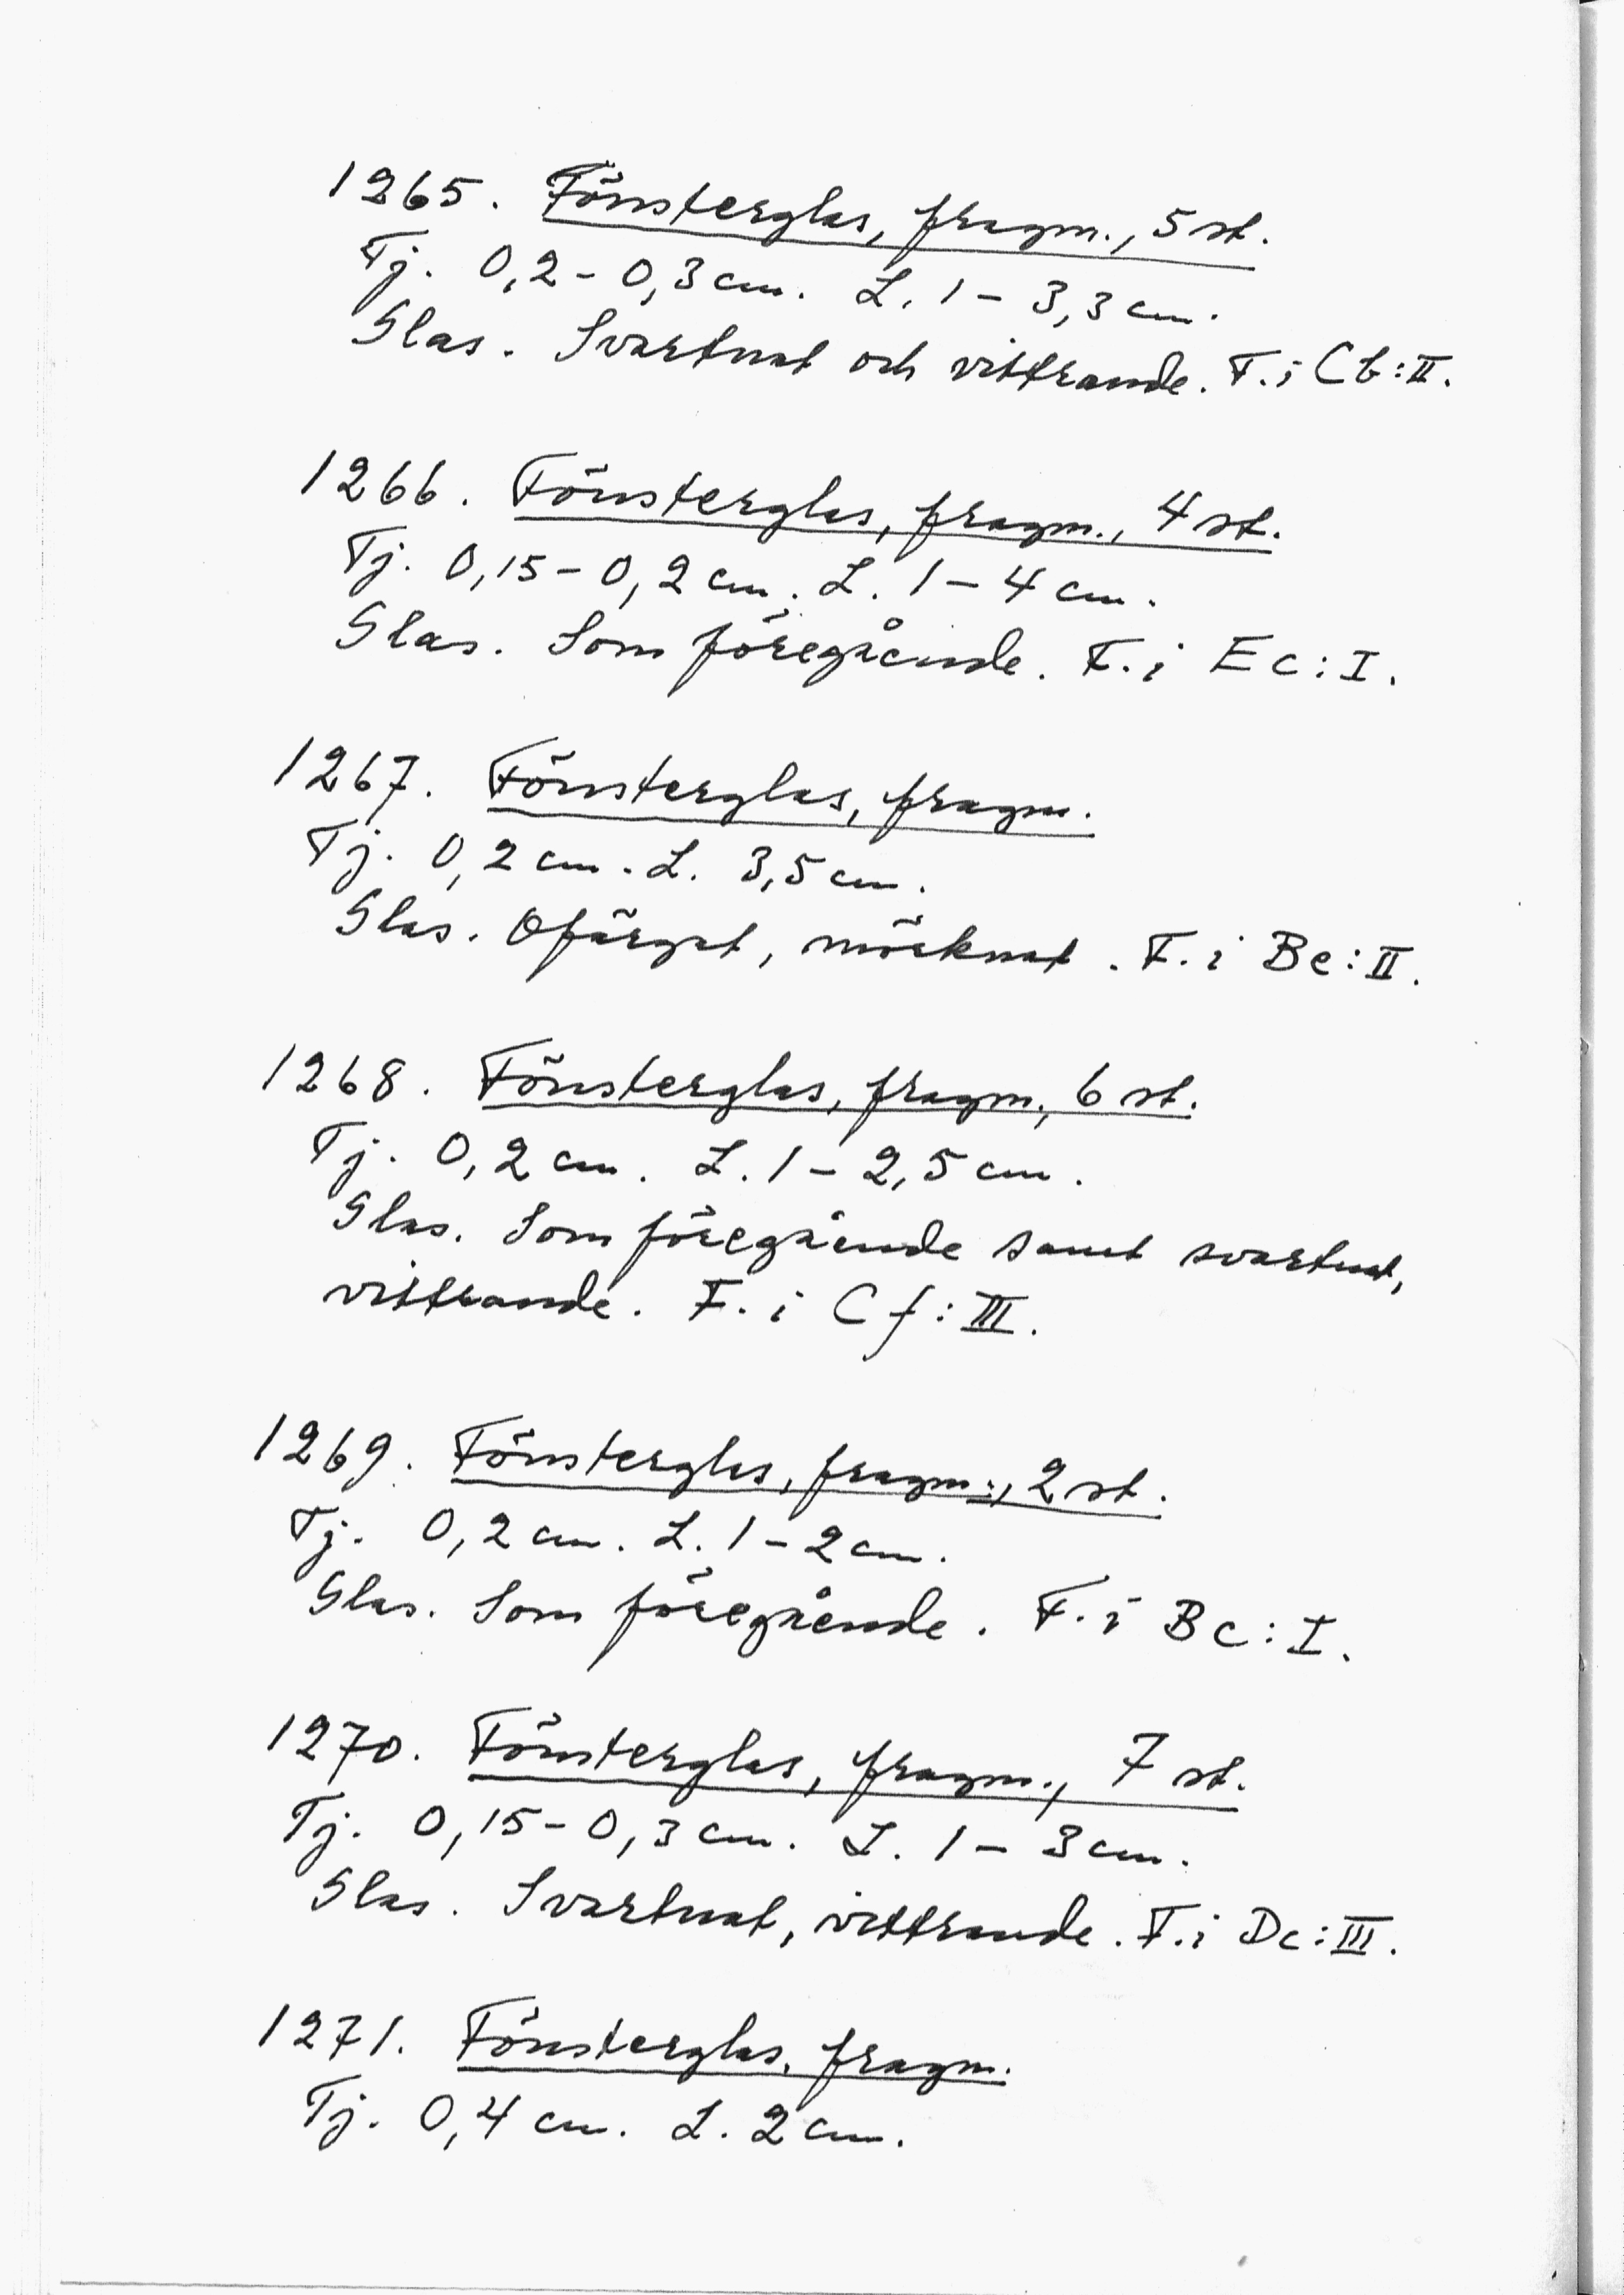 1265. Fönsterglas, fragm., 5 st.
Tj. 0,2 - 0,3 cm. L. 1 - 3,3 cm.
Glas. Svartnat och vittrande. F. i Cb:II.
1266. Fönsterglas, fragm., 4 st.
Tj. 0,15 - 0,2 cm. L. 1 - 4 cm.
Glas. Som föregående. F. i Ec:I.
1267. Fönsterglas, fragm.
Tj. 0,2 cm. L. 3,5 cm.
Glas. Ofärgat, mörknat. F. i Be:II.
1268. Fönsterglas, fragm., 6 st.
Tj. 0,2 cm. L. 1 - 2,5 cm.
Glas. Som föregående samt svartnat,
vittrande. F. i Cf:III.
1269. Fönsterglas, fragm., 2 st.
Tj. 0,2 cm. L. 1 - 2 cm.
Glas. Som föregående. F. i Bc:I.
1270. Fönsterglas, fragm., 7 st.
Tj. 0,15 - 0,3 cm. L. 1 - 3 cm.
Glas. Svartnat, vittrande. F. i Dc:III.
1271. Fönsterglas, fragm.
Tj. 0,4 cm. L. 2 cm.